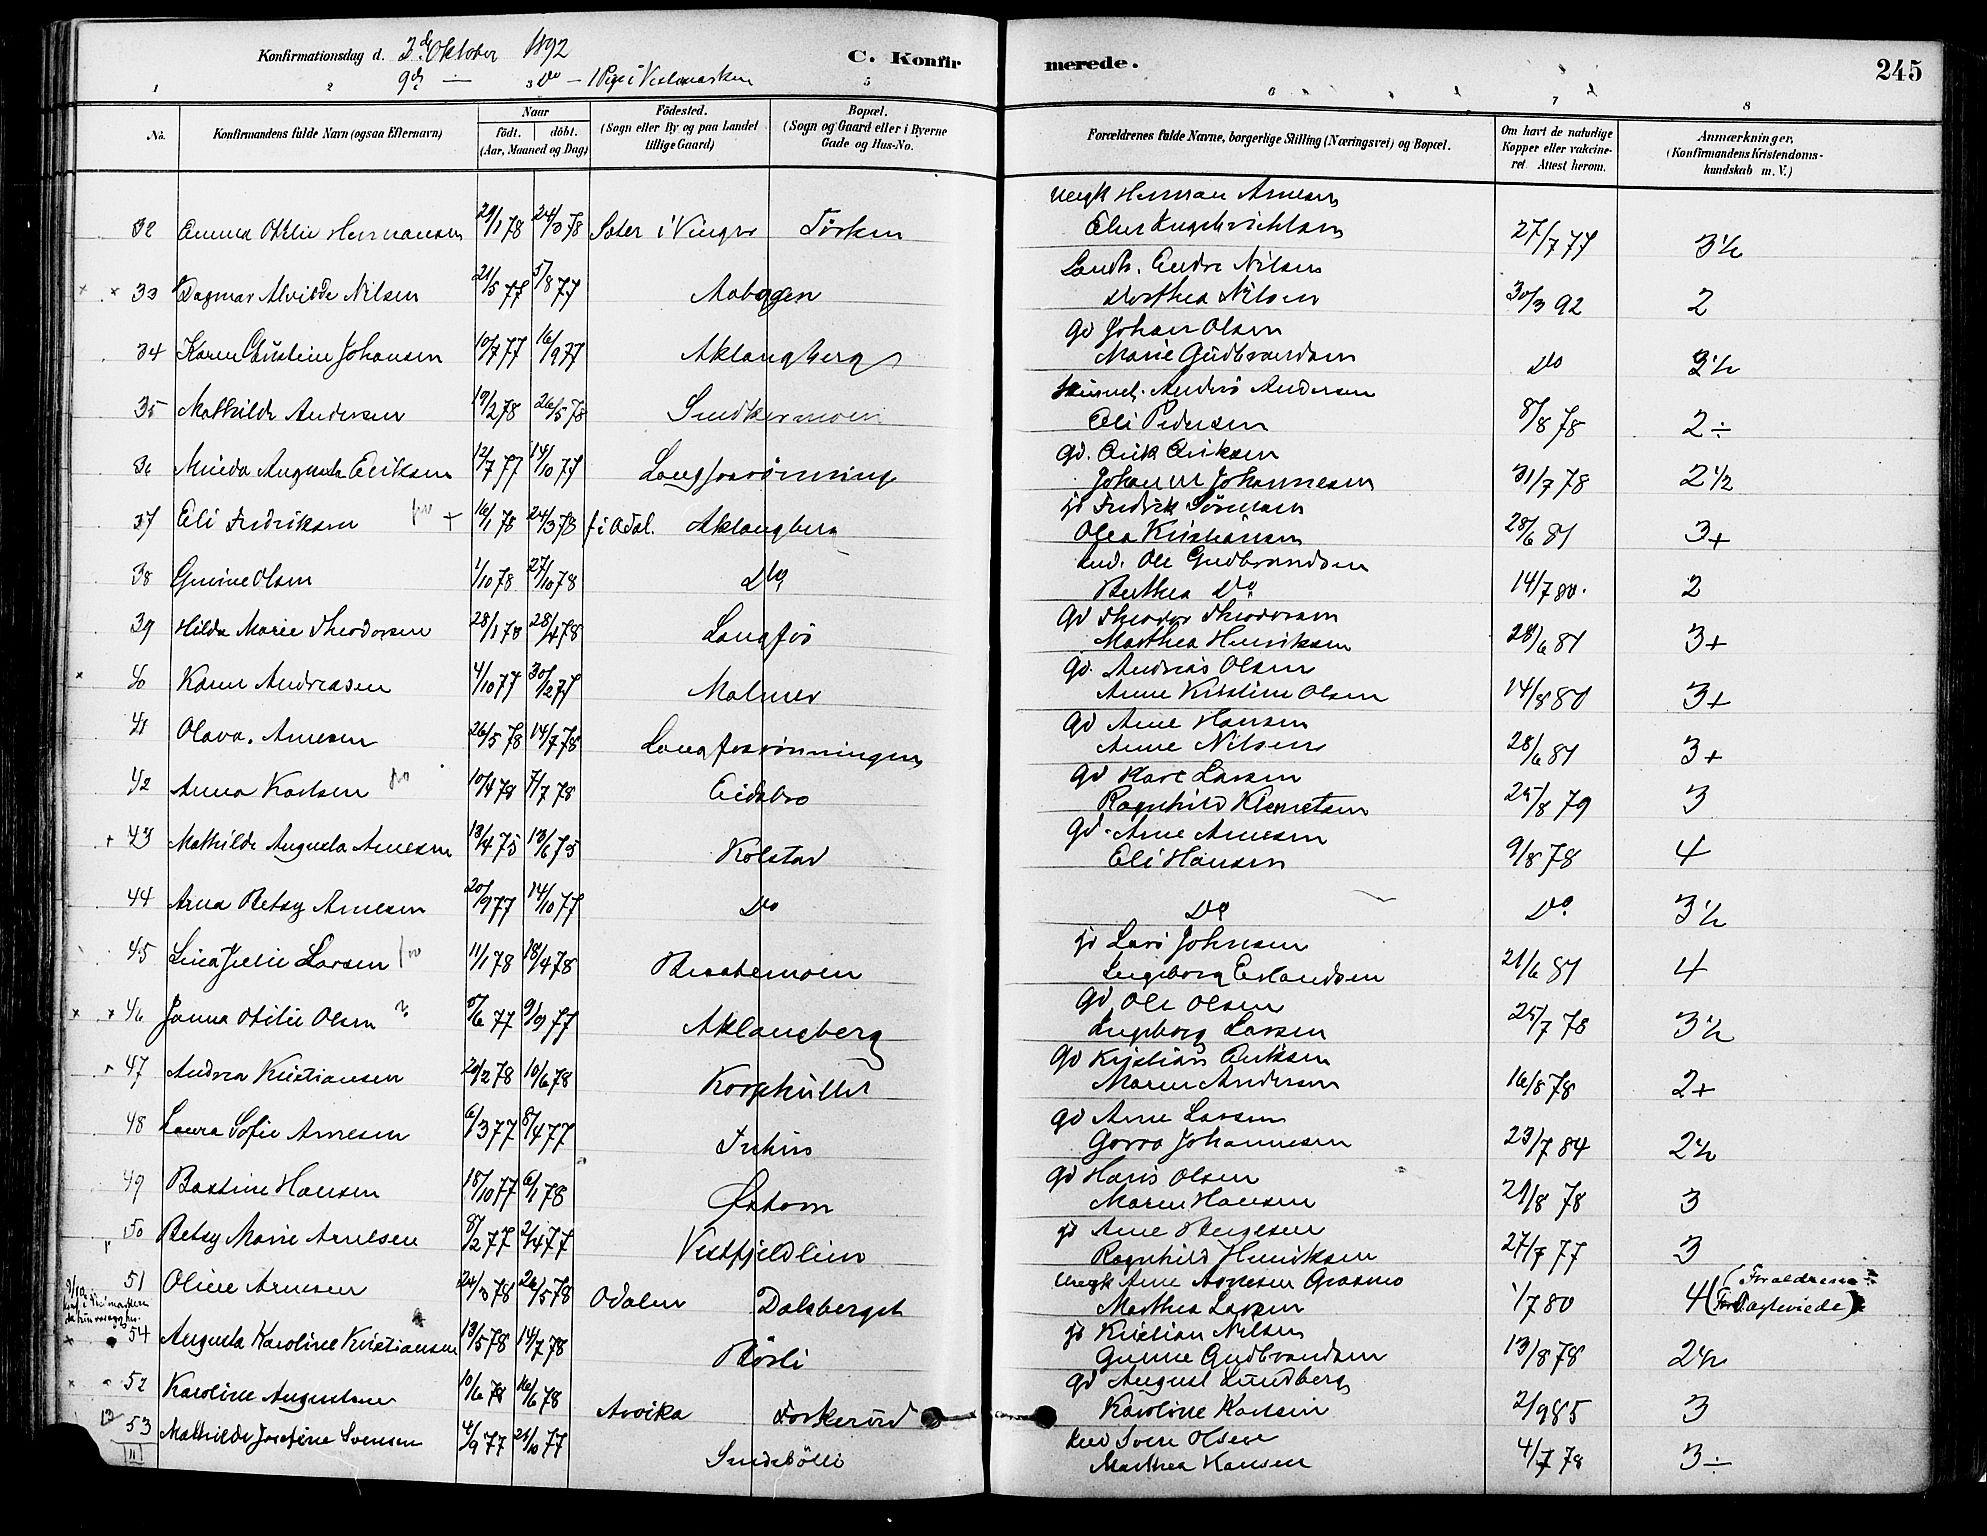 Konfirmationsdag d. 2den Oktober 1892 C. Konfirmerede. 245
9de — Do — 1 Pige i Vestmarken
1 2 3 5 6 7 8
No. Konfirmandens fulde Navn (ogsaa Efternavn) Naar födt. döbt. (Aar, Maaned og Dag) Födested. (Sogn eller By og paa Landet tillige Gaard) Bopæl. (Sogn og Gaard eller i Byerne Gade og Hus-No. Forældrenes fulde Navne, borgerlige Stilling (Næringsvei) og Bopæl. Om havt de naturlige Kopper eller vakcineret. Attest herom. Anmærkninger, (Konfirmandens Kristendomskundskab m. V.)
32 Emma Otilie Hermansen 29/1 78 24/3 78 Sæter i Vinger Herman Arnesen
27/7 77 3½
33 Dagmar Alvilde Nilsen 21/5 77 5/8 77 Aabogen Andre Nilsen
Dorthea Nilsen 30/3 92 2
34 Karen Christine Johansen 10/7 77 16/9 77 Aklangberg Gd Johan Olsen
Marie Gudbrandsen Do 3½
35 Mathilde Andersen 19/2 78 26/5 78 Anders Andersen
Eli Pedersen 8/8 78 2÷
36 Minda Augusta Eriksen 12/7 77 14/10 77 Langfosrönning Gd. Erik Eriksen
Johanne Johannesen 31/7 78 2½
37 Eli Fredriksen + 16/1 78 24/3 78 f i Odal. Aklangberg Fredrik Sörensen
Olea Kristiansen 28/6 81 3+
38 Gunine Olsen 1/10 78 27/10 78 Do Ole Gudbrandsen
Berthea Do 14/7 80. 2
39 Hilda Marie Theodorsen 28/1 78 28/4 78 Langfos Gd Theodor Theodorsen
Marthea Henriksen 28/6 81 3+
40 Karen Andreasen 4/10 77 30/12 77 Malmer Gd. Andreas Olsen
Anne Kristine Olsen 14/8 80 3+
41 Olava. Arnesen 26/5 78 14/7 78 Langfosrönningen Gd Arne Hansen
Anne Nilsen 28/6 81 3+
42 Anna Karlsen 10/4 78 7/7 78 Eidsbro Gd Karl Larsen
Ragnhild Klemetsen 25/8 79 3
+ 43 Mathilde Augusta Arnesen 18/4 75 13/6 75 Kolstad Gd. Arne Arnesen
Eli Hansen 9/8 78 4
44 Anna Betsy Arnesen 20/9 77 14/10 77 Do Do Do 3½
45 Lina Julie Larsen 11/1 78 28/4 78 Gd Lars Johnsen
Ingeborg Erlandsen 21/6 81 4
x x 46 Janna Otilie Olsen 5/6 77 9/9 77 Aklangberg Gd Ole Olsen
Ingeborg Larsen 25/7 78 3½
47 Andrea Kristiansen 20/2 78 10/6 78 Korphullet Gd Kristian Eriksen
Maren Andersen 16/8 78 2+
48 Laura Sofie Arnesen 6/3 77 8/4 77 Gd Arne Larsen
Gorro Johannesen 23/7 84 2½
49 Bastine Hansen 18/10 77 6/1 78 Östom Gd Hans Olsen
Maren Hansen 29/8 78 3
50 Betsy Marie Arnesen 8/2 77 2/4 77 Vestfjeldlien Arne Bergesen
Ragnhild Henriksen 27/7 77 3
51 Oline Arnesen 24/3 78 26/5 78 Odalen Dalsberget Arne Arnesen Grasmo
Marthea Larsen 1/7 80 4 (Forældrene
54 Augusta Karoline Kristiansen 13/5 78 14/7 78 Rösli Kristian Nilsen
Gunine Gudbrandsen 13/8 78 2½
x 52 Karoline Augustsen 10/6 78 16/6 78 Arvika Torkerud Gd August Lundberg
Karoline Karlsen 2/9 85 3
53 Mathilde Josefine Svensen 4/9 77 21/10 77 Sven Olsen
Marthea Hansen 4/7 78 3÷
11